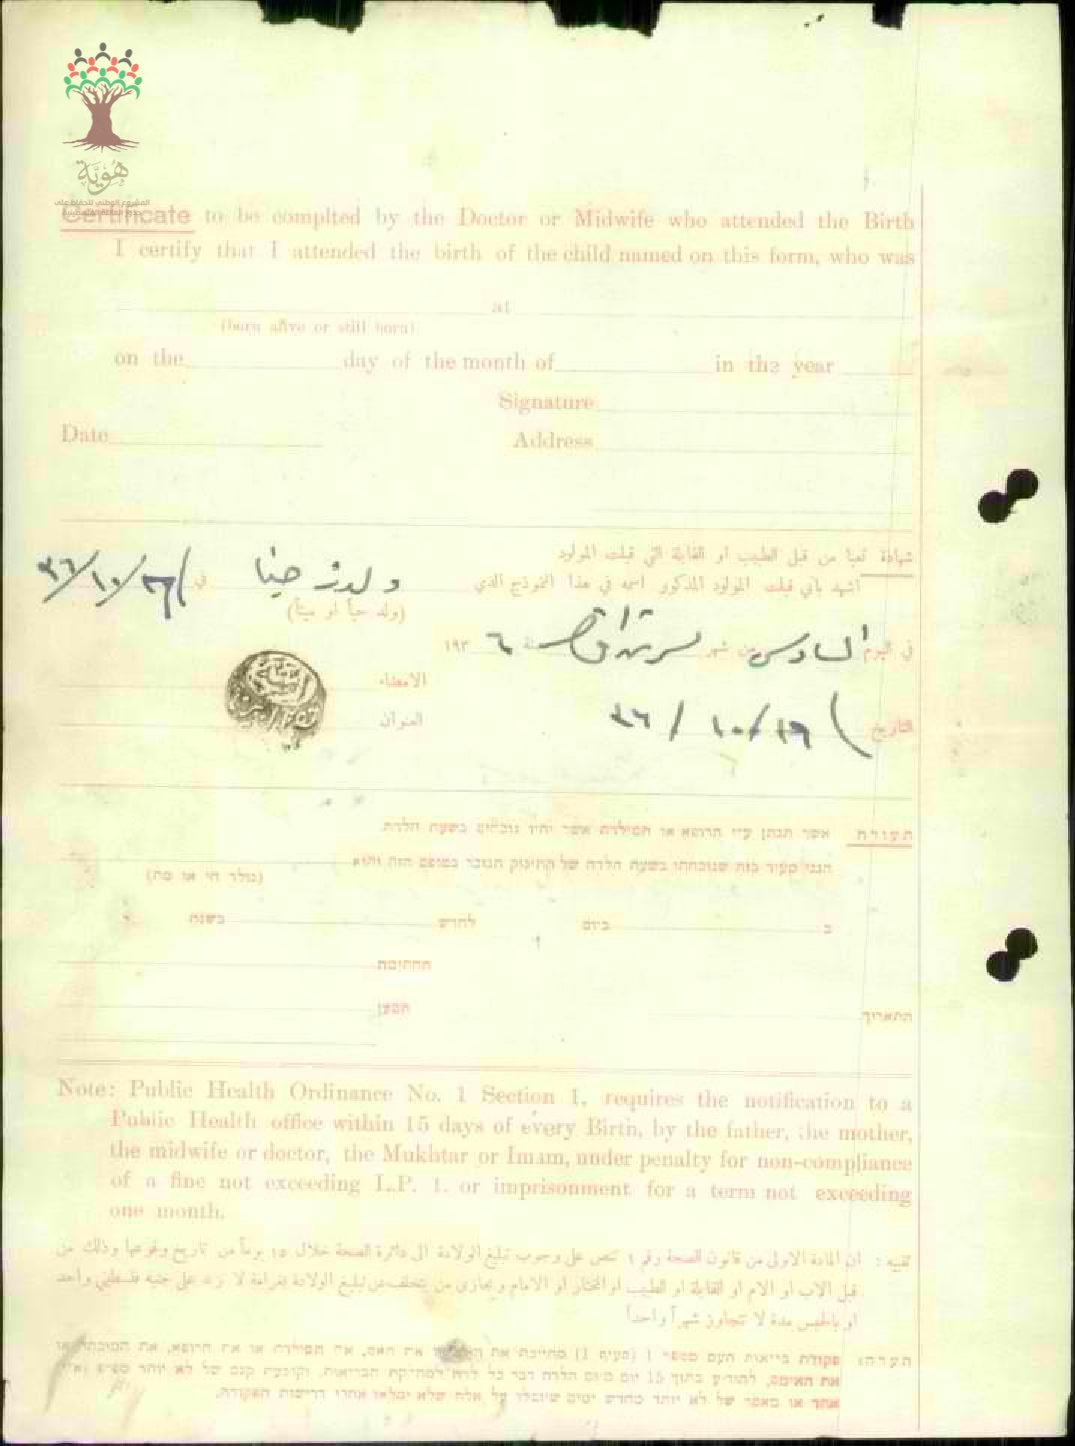 هُوِيَّة
المشروع الوطني للحفاظ على
Certificate to be complted by the Doctor or Midwife who attended the Birth
I certify that I attended the birth of the child named on this form, who was
at
(born alive or still born)
on the day of the month of in the year
Signature
Date Address
شهادة تعبأ من قبل الطبيب او القابلة التي قبلت المولود
اشهد بأني قبلت المولود المذكور اسمه في هذا النموذج الذي ولد حيا في ٢٦/١٠/٣٦
(ولد حياً او ميتاً)
في اليوم السادس من شهر سنة ١٩٣٦
الامضاء
التاريخ ٢٦/١٠/٣٦ العنوان
תעודה אשר תנתן ע״י הרופא או המילדת אשר יהיו נוכחים בשעת הלדת.
הנני מעיד בזה שנוכחתי בשעת הלדה של התינוק הנזכר בטופס הזה והוא
(נולד חי או מת)
ב ביום לחדש בשנת
החתימה
התאריך המען
Note: Public Health Ordinance No. 1 Section 1, requires the notification to a
Public Health office within 15 days of every Birth, by the father, the mother,
the midwife or doctor, the Mukhtar or Imam, under penalty for non-compliance
of a fine not exceeding L.P. 1. or imprisonment for a term not exceeding
one month.
تنبيه : ان المادة الاولى من قانون الصحة رقم ١ تنص على وجوب تبليغ الولادة الى دائرة الصحة خلال ١٥ يوماً من تاريخ وقوعها وذلك من
قبل الاب او الام او القابلة او الطبيب او المختار او الامام ويجازى من يتخلف عن تبليغ الولادة بغرامة لا تزيد على جنيه فلسطيني واحد
او بالحبس مدة لا تتجاوز شهراً واحداً
הערה: פקודת בריאות העם מספר 1 (סעיף 1) מחייבת את האב או את האם, את המילדת או את הרופא, את המוכתר או
את האימם, להודיע בתוך 15 יום מיום הלדה דבר כל לדה למחלקת הבריאות, וקובעת קנס של לא יותר מפונט א״י
אחד או מאסר של לא יותר מחדש ימים שיוטלו על אלה שלא ימלאו אחרי דרישות הפקודה.